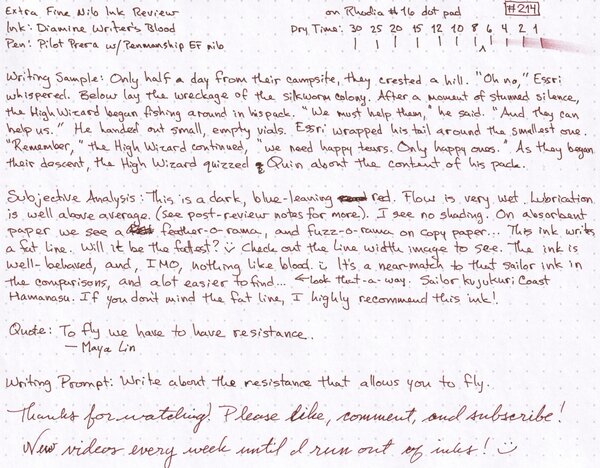 Extra Fine Nib Ink Review on Rhodia #16 dot pad #214
Ink: Diamine Writer's Blood Dry Time: 30 25 20 15 12 10 8 6 4 2 1
Pen: Pilot Prera w/Penmanship EF nib
Writing Sample: Only half a day from their campsite, they crested a hill. "Oh no," Essri
whispered. Below lay the wreckage of the silkworm colony. After a moment of stunned silence,
the High Wizard began fishing around in his pack. "We must help them," he said. "And they can
help us." He handed out small, empty vials. Essri wrapped his tail around the smallest one.
"Remember," the High Wizard continued, "we need happy tears. Only happy ones." As they began
their descent, the High Wizard quizzed Quin about the content of his pack.
Subjective Analysis: This is a dark, blue-leaning red. Flow is very wet. Lubrication
is well above average. (see post-review notes for more). I see no shading. On absorbent
paper we see a feather-o-rama, and fuzz-o-rama on copy paper... This ink writes
a fat line. Will it be the fattest? Check out the Line width image to see. The ink is
well-behaved, and, IMO, nothing like blood. It's a near-match to that sailor ink in
the comparisons, and alot easier to find... ←look that-a-way. Sailor Kujukuri Coast
Hamanasu. If you don't mind the fat line, I highly recommend this ink!
Quote: To fly we have to have resistance.
— Maya Lin
Writing Prompt: Write about the resistance that allows you to fly.
Thanks for watching! Please like, comment, and subscribe!
New videos every week until I run out of inks!